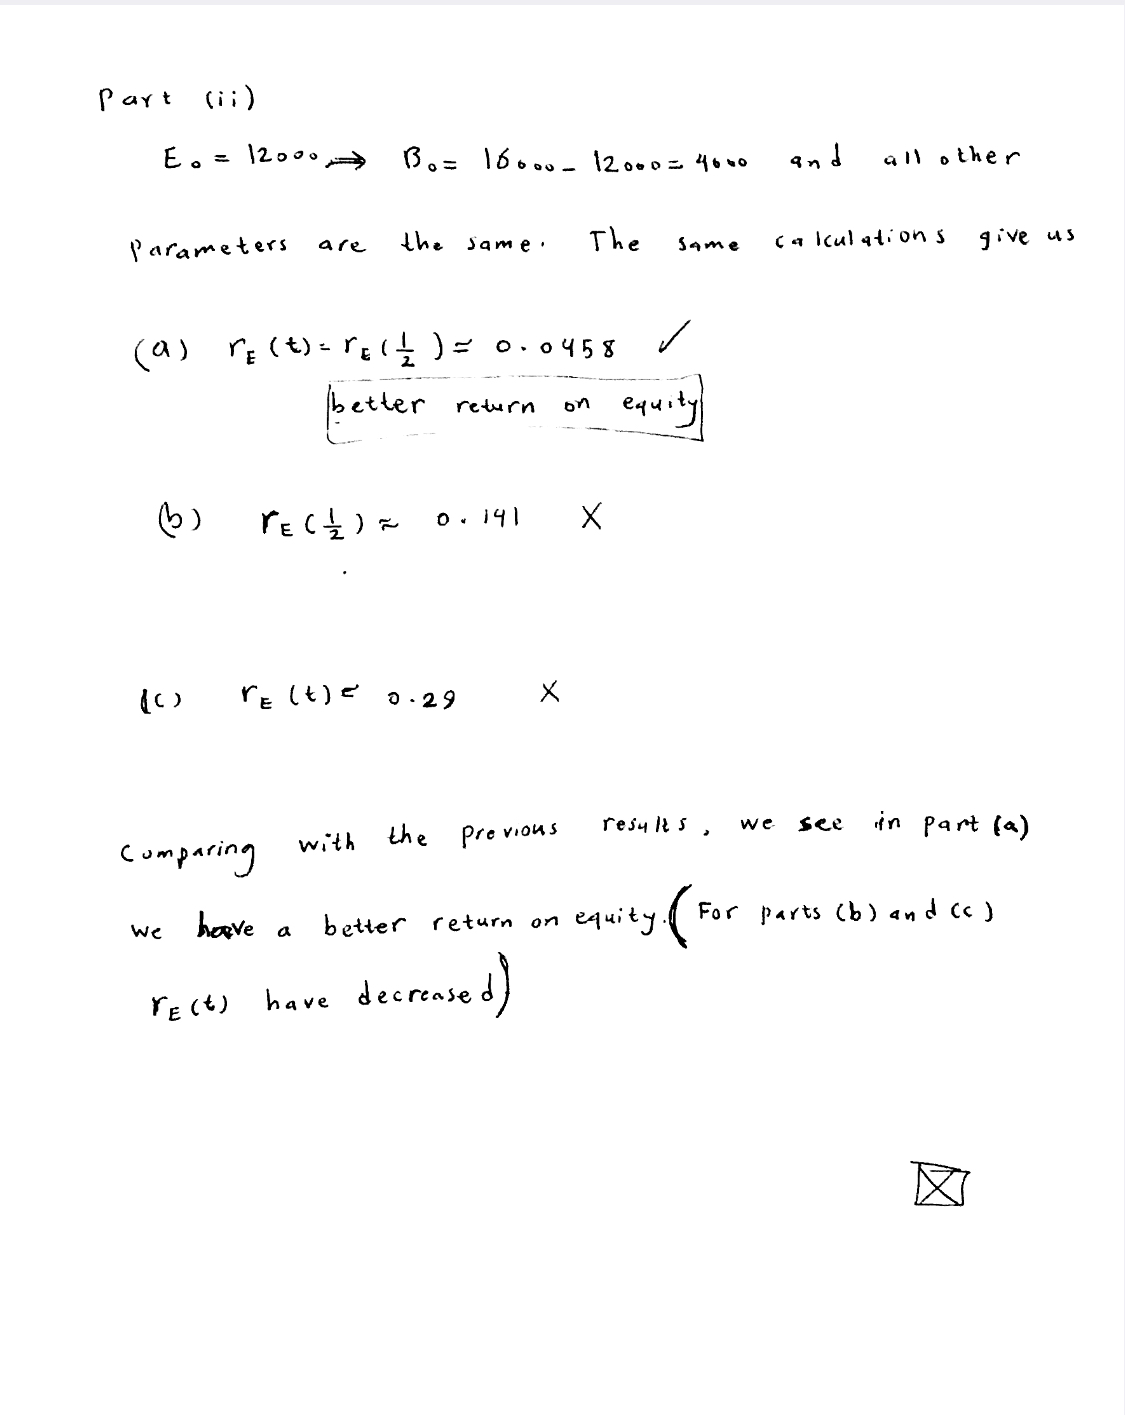 Part (ii)
E₀ = 12000 ⟹ B₀ = 16000 - 12000 = 4000 and all other
parameters are the same. The same calculations give us
(a) r_E (t) = r_E (1/2) ≈ 0.0458 ✓
better return on equity
(b) r_E (1/2) ≈ 0.141 X
(c) r_E (t) = 0.29 X
Comparing with the previous results, we see in part (a)
we have a better return on equity. (For parts (b) and (c)
r_E (t) have decreased)